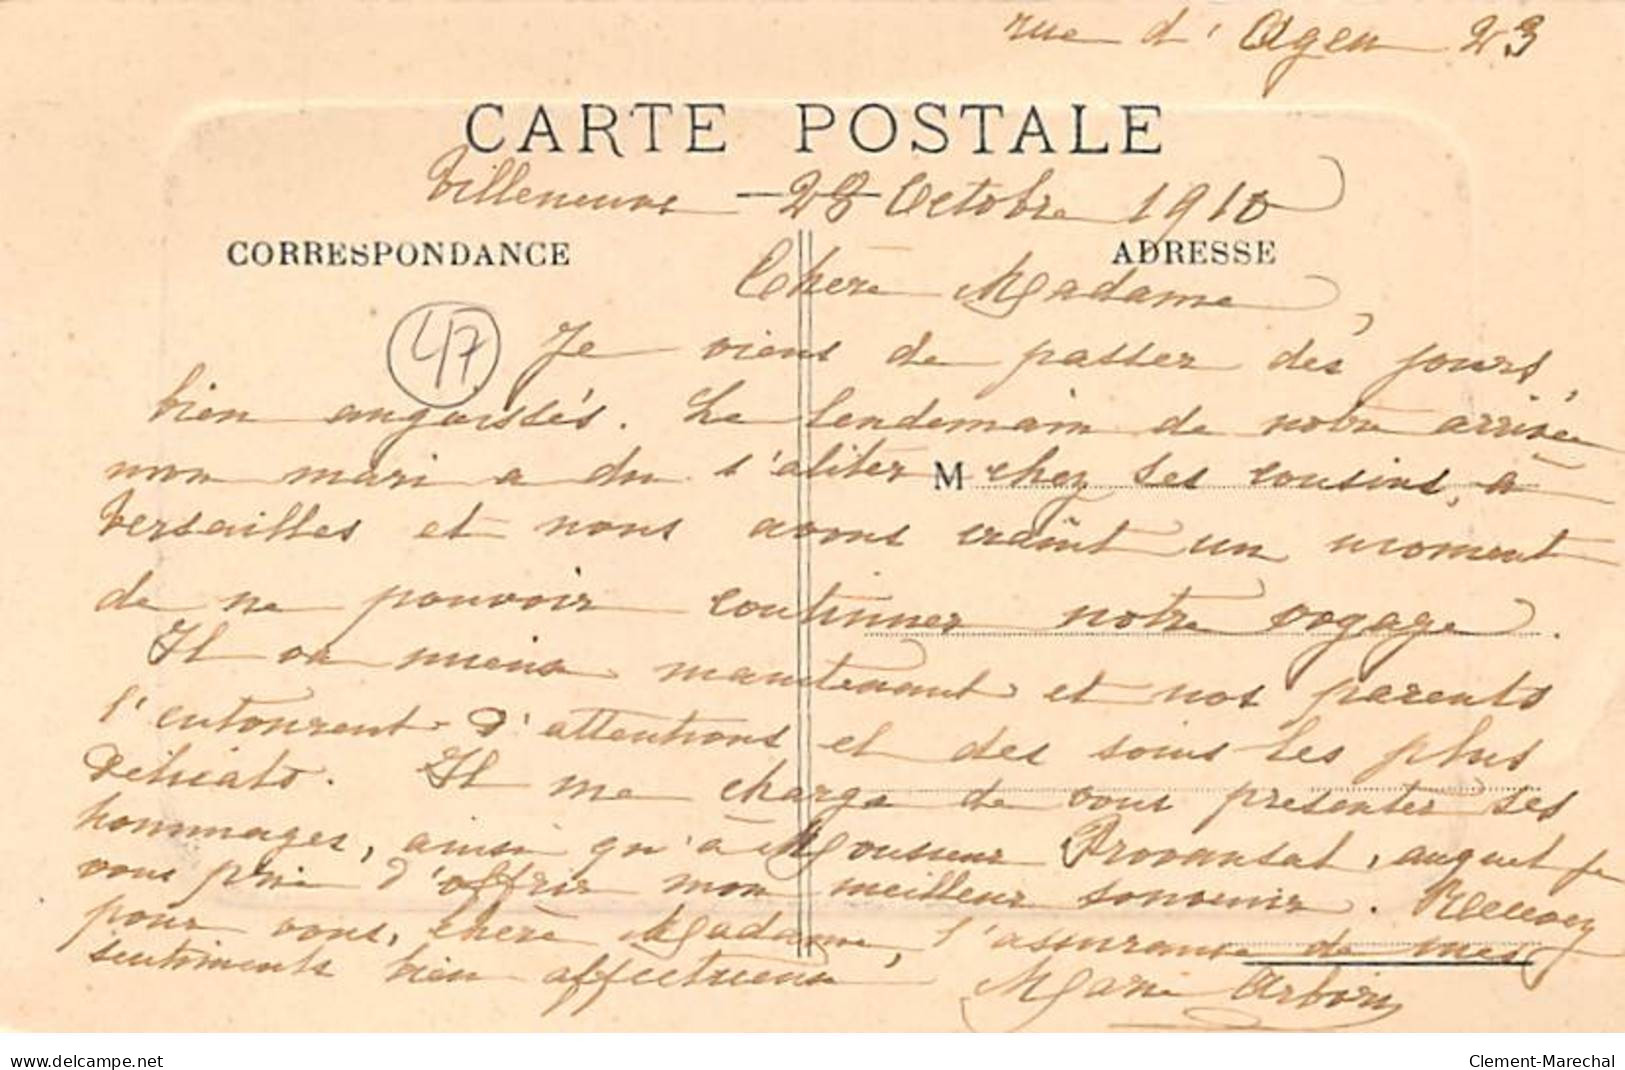 rue d'Agen 23
CARTE POSTALE
Villeneuve - 28 Octobre 1910
CORRESPONDANCE
ADRESSE
Chère Madame,
47
Je viens de passer des jours,
bien angoissés. Le lendemain de notre arrivée
mon mari a du s'aliter chez ses cousins, à
M
Versailles et nous avons craint un moment
de ne pouvoir continuer notre voyage.
Il va mieux maintenant et nos parents
l'entourent d'attentions et des soins les plus
délicats. Il me charge de vous présenter ses
hommages, ainsi qu'à Monsieur Provansat, auquel je
vous prie d'offrir mon meilleur souvenir. Recevez
pour vous, chère Madame, l'assurance de mes
sentiments bien affectueux
Marie
www.delcampe.net
Clement-Marechal